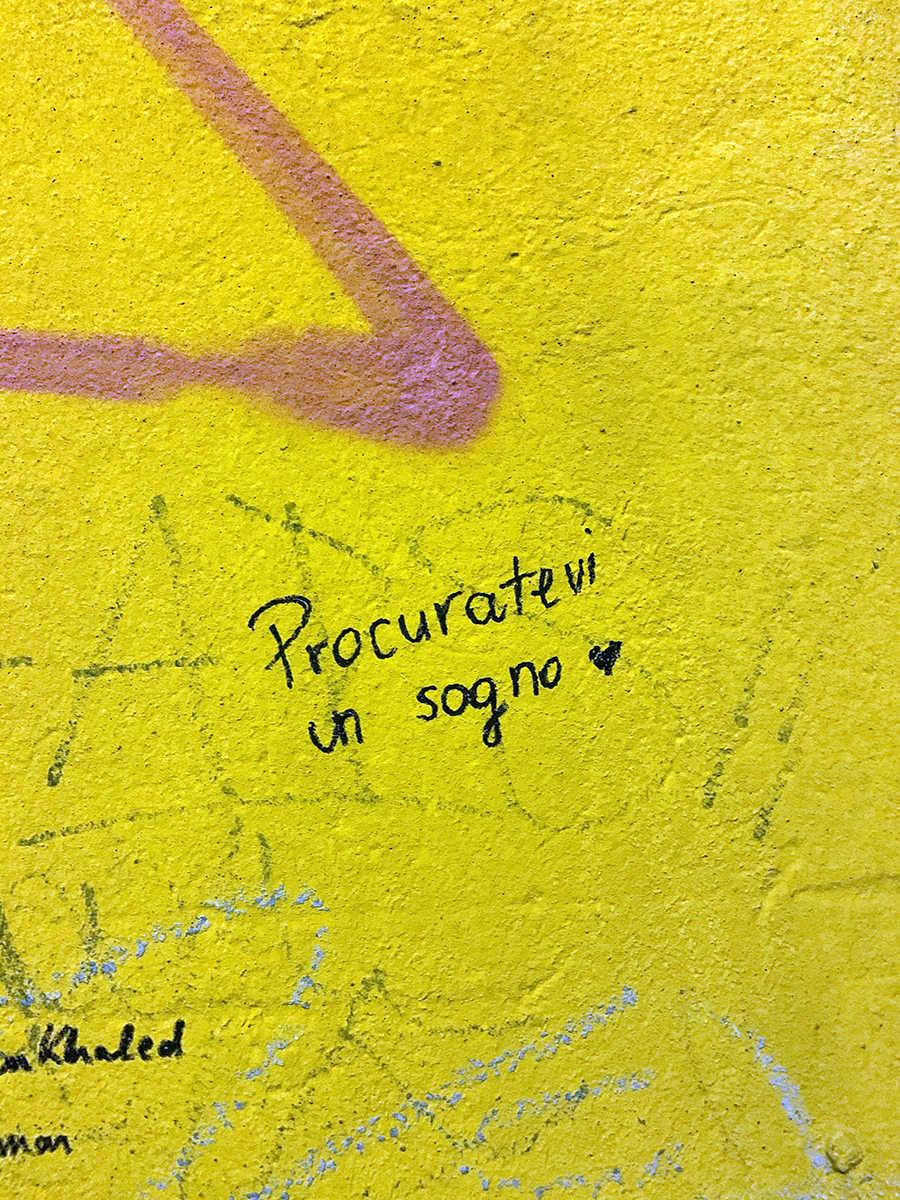 Procuratevi
un sogno ♥
Khaled